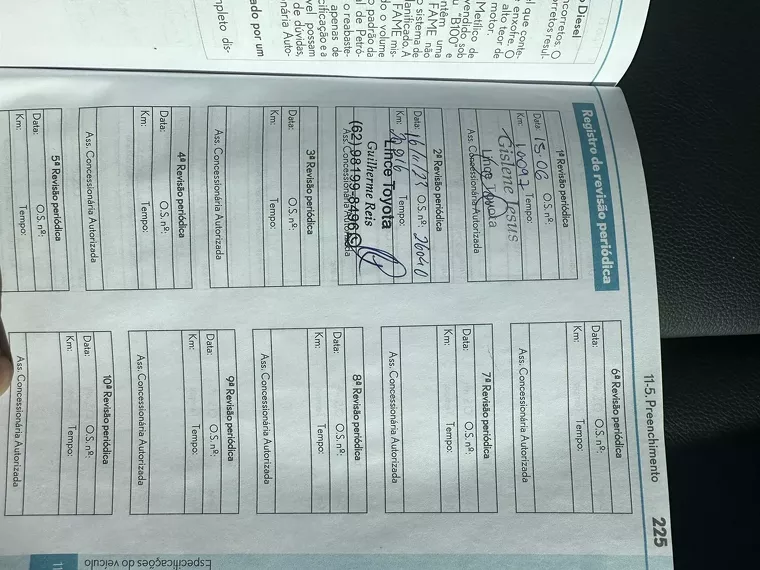 o Diesel
ncorretos. O
rretos resul-
l que conte-
enxofre. O
alto teor de
motor.
Metílico de
vendido sob
u "B100" e
ntém uma
FAME não
o sistema de
anificado. A
FAME mis-
do o volume
o padrão da
al de Petró-
o reabaste-
apenas de
cificação e a
vel possam
de dúvidas,
nária Auto-
ado por um
mpleto dis-
11-5. Preenchimento
225
Registro de revisão periódica
1ª Revisão periódica
Data: 15.06 O.S. nº:
Km: 10097 Tempo:
Gislene Jesus
Lince Toyota
Ass. Concessionária Autorizada
2ª Revisão periódica
Data: 16/11/23 O.S. nº: 26040
Km: 20216 Tempo:
Lince Toyota
Guilherme Reis
(62) 98199-8496
Ass. Concessionária Autorizada
3ª Revisão periódica
Data: O.S. nº:
Km: Tempo:
Ass. Concessionária Autorizada
4ª Revisão periódica
Data: O.S. nº:
Km: Tempo:
Ass. Concessionária Autorizada
5ª Revisão periódica
Data: O.S. nº:
Km: Tempo:
6ª Revisão periódica
Data: O.S. nº:
Km: Tempo:
Ass. Concessionária Autorizada
7ª Revisão periódica
Data: O.S. nº:
Km: Tempo:
Ass. Concessionária Autorizada
8ª Revisão periódica
Data: O.S. nº:
Km: Tempo:
Ass. Concessionária Autorizada
9ª Revisão periódica
Data: O.S. nº:
Km: Tempo:
Ass. Concessionária Autorizada
10ª Revisão periódica
Data: O.S. nº:
Km: Tempo:
Ass. Concessionária Autorizada
11
Especificações do veículo